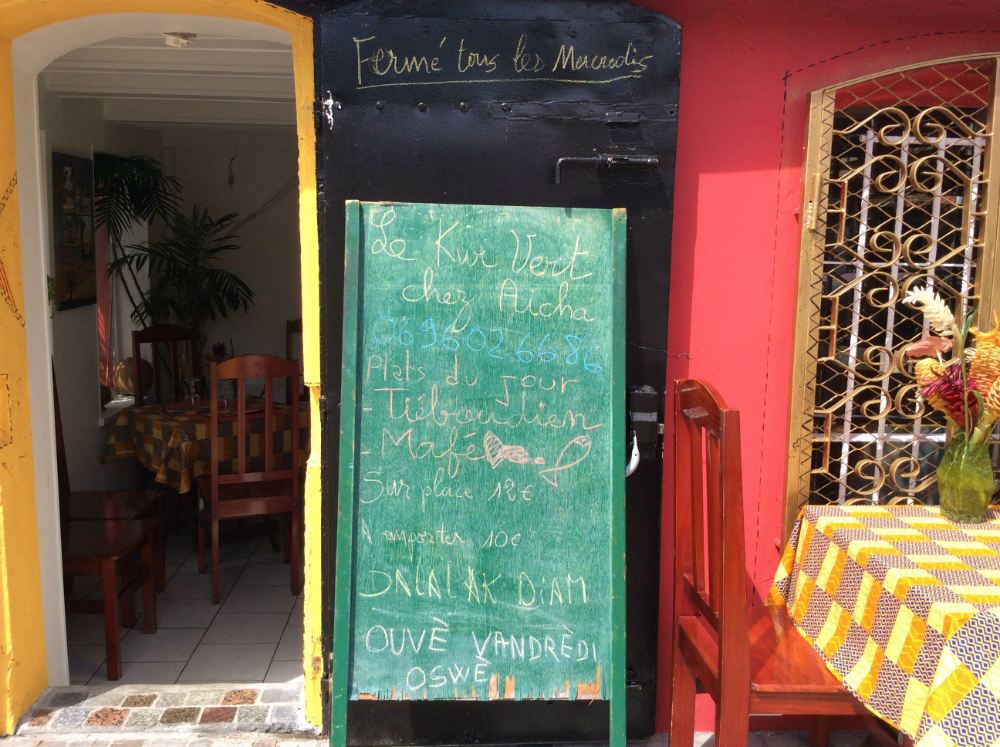 Fermé tous les Mercredis
Le Kivi Vert
chez Aicha
0696026686
Plats du jour
- Tiéboudien
- Mafé
Sur place 12€
A emporter 10€
JALALAK DiAM
OUVÈ VANDRÈDI
OSWÈ